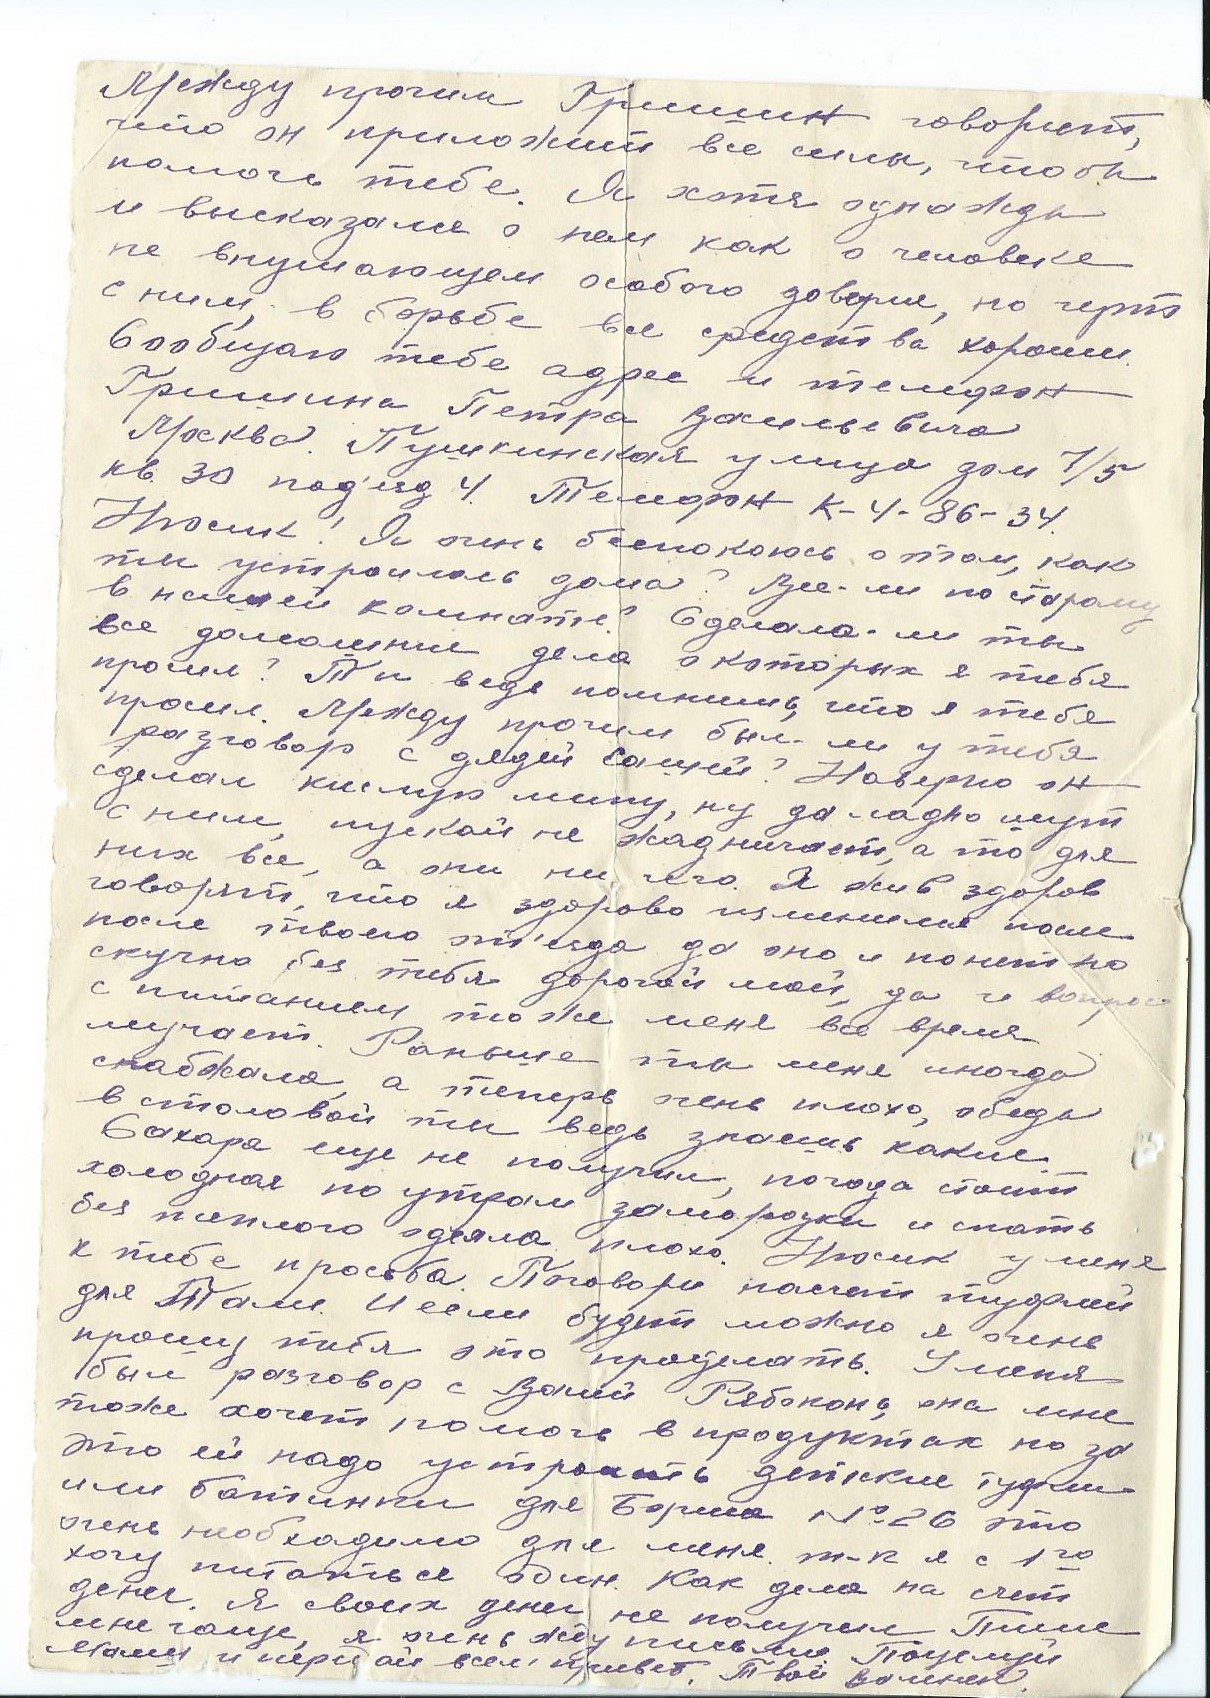 Между прочим Гришин говорит,
что он приложит все силы, чтобы
помочь тебе. Я хотя однажды
и высказался о нем как о человеке
не внушающем особого доверия, но черт
с ним, в борьбе все средства хороши.
Сообщаю тебе адрес и телефон
Гришина Петра Васильевича
Москва. Пушкинская улица дом 7/5
кв 30 под'езд 4. Телефон К-4-86-34.
Нюсик! Я очень беспокоюсь о том, как
ты устроилась дома? Все-ли по старому
в нашей комнате? Сделала-ли ты
все домашние дела о которых я тебя
просил? Ты ведь помнишь, что я тебя
просил. Между прочим был-ли у тебя
разговор с дядей Сашей? Наверно он
сделал кислую мину, ну да ладно шут
с ним, пускай не жадничает, а то для
них все, а они ни чего. Я жив здоров
говорят, что я здорово изменился после
после твоего от'езда да оно и понятно
скучно без тебя дорогой мой, да и вопрос
с питанием тоже меня все время
мучает. Раньше ты меня иногда
снабжала, а теперь очень плохо, обеды
в столовой ты ведь знаешь какие.
Сахара еще не получил, погода стоит
холодная по утрам заморозки и спать
без теплого одеяла плохо. Нюсик у меня
к тебе просьба. Поговори насчет туфлей
для Тани. И если будет можно я очень
прошу тебя это проделать. У меня
был разговор с Валей Рябоконь, она мне
тоже хочет помочь в продуктах но за
это ей надо устроить детские туфли
или ботинки для Бориса № 26 это
очень необходимо для меня т-к я с 1го
хочу питаться один. Как дела на счет
денег. Я своих денег не получил Пиши
мне чаще, я очень жду письма. Поцелуй
Маму и передай всем привет. Твой